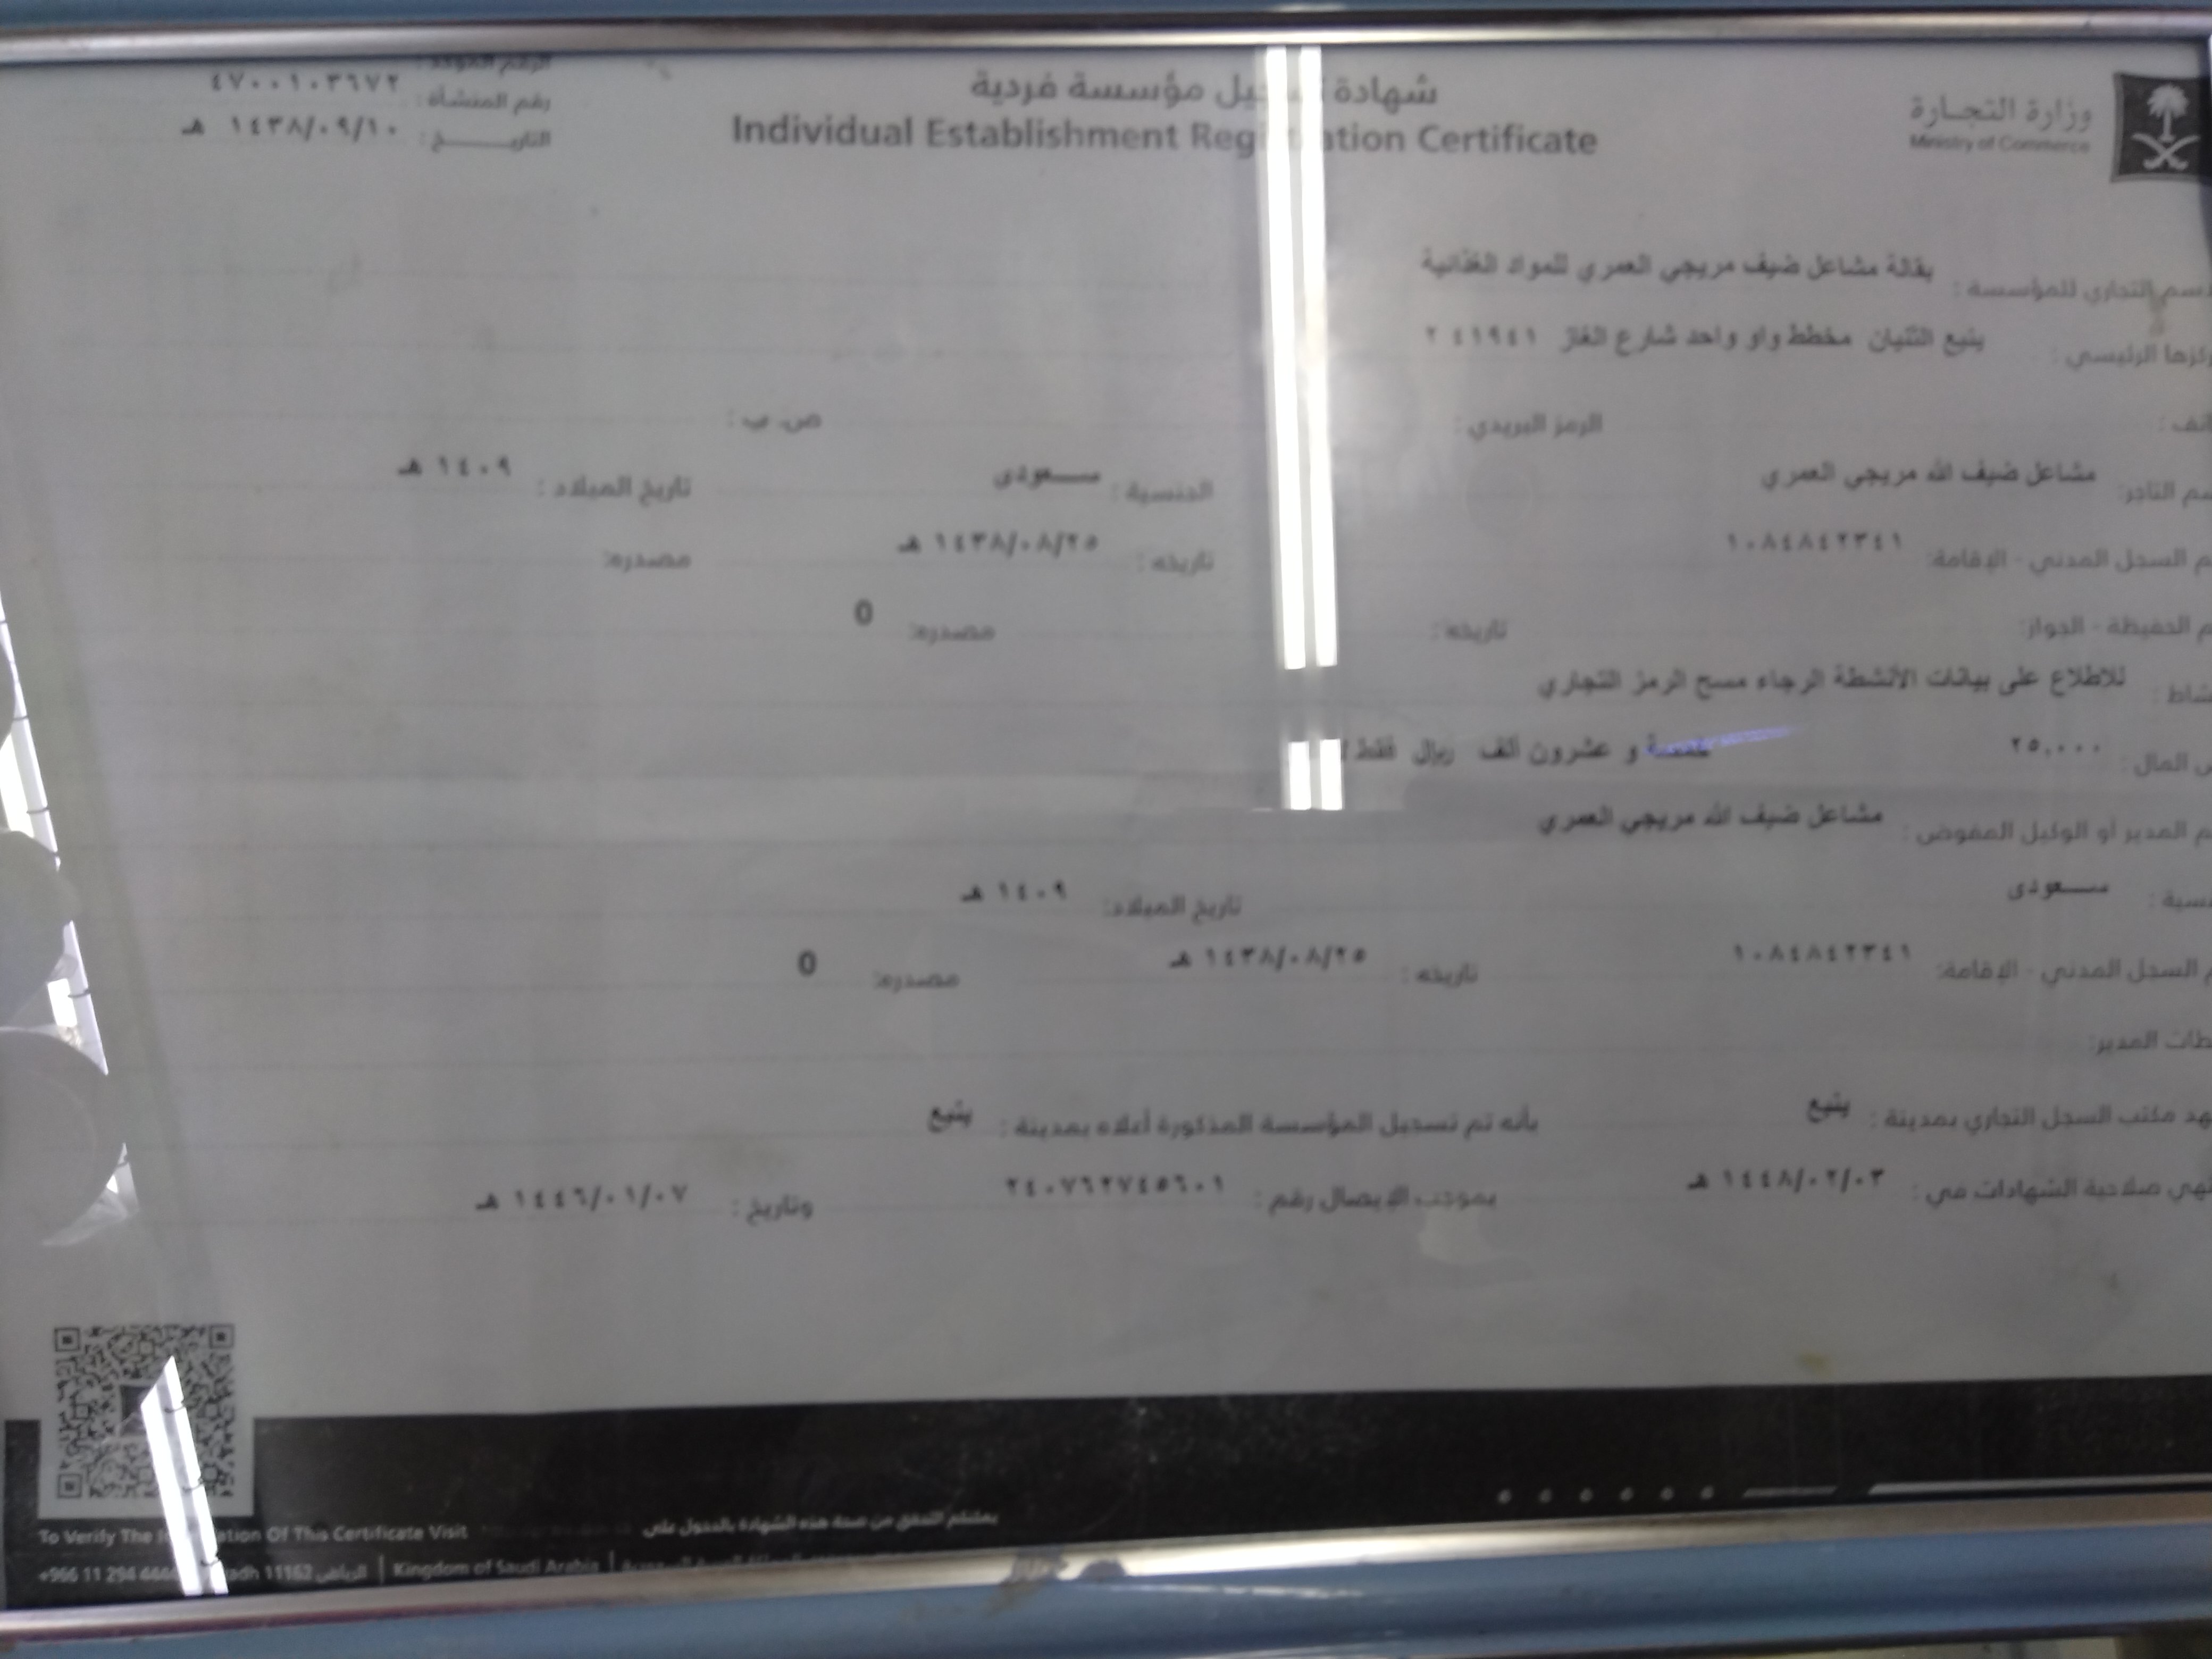 وزارة التجارة
Ministry of Commerce
شهادة تسجيل مؤسسة فردية
Individual Establishment Registration Certificate
الرقم الموحد :
رقم المنشأة : ٤٧٠٠١٠٣٦٧٢
التاريـــــــخ : ١٤٣٨/٠٩/١٠ هـ
الاسم التجاري للمؤسسة : بقالة مشاعل ضيف مريجي العمري للمواد الغذائية
مركزها الرئيسي : ينبع الثنيان مخطط واو واحد شارع الغاز ٢٤١٩٤١
هاتف : الرمز البريدي : ص. ب :
اسم التاجر: مشاعل ضيف الله مريجي العمري الجنسية : ســـعودى تاريخ الميلاد : ١٤٠٩ هـ
رقم السجل المدني - الإقامة: ١٠٨٤٨٤٢٣٤١ تاريخه : ١٤٣٨/٠٨/٢٥ هـ مصدره:
رقم الحفيظة - الجواز: تاريخه : مصدره: 0
النشاط : للاطلاع على بيانات الأنشطة الرجاء مسح الرمز التجاري
رأس المال : ٢٥,٠٠٠ خمسة و عشرون ألف ريال فقط
اسم المدير أو الوكيل المفوض : مشاعل ضيف الله مريجي العمري
الجنسية : ســـعودى تاريخ الميلاد: ١٤٠٩ هـ
رقم السجل المدني - الإقامة: ١٠٨٤٨٤٢٣٤١ تاريخه : ١٤٣٨/٠٨/٢٥ هـ مصدره: 0
سلطات المدير:
يشهد مكتب السجل التجاري بمدينة : ينبع بأنه تم تسجيل المؤسسة المذكورة أعلاه بمدينة : ينبع
تنتهي صلاحية الشهادات في : ١٤٤٨/٠٢/٠٣ هـ بموجب الإيصال رقم : ٢٤٠٧٦٢٧٤٥٦٠١ وتاريخ : ١٤٤٦/٠١/٠٧ هـ
يمكنكم التحقق من صحة هذه الشهادة بالدخول على
To Verify The Of This Certificate Visit
+966 11 294 الرياض 11162 | Kingdom of Saudi Arabia |